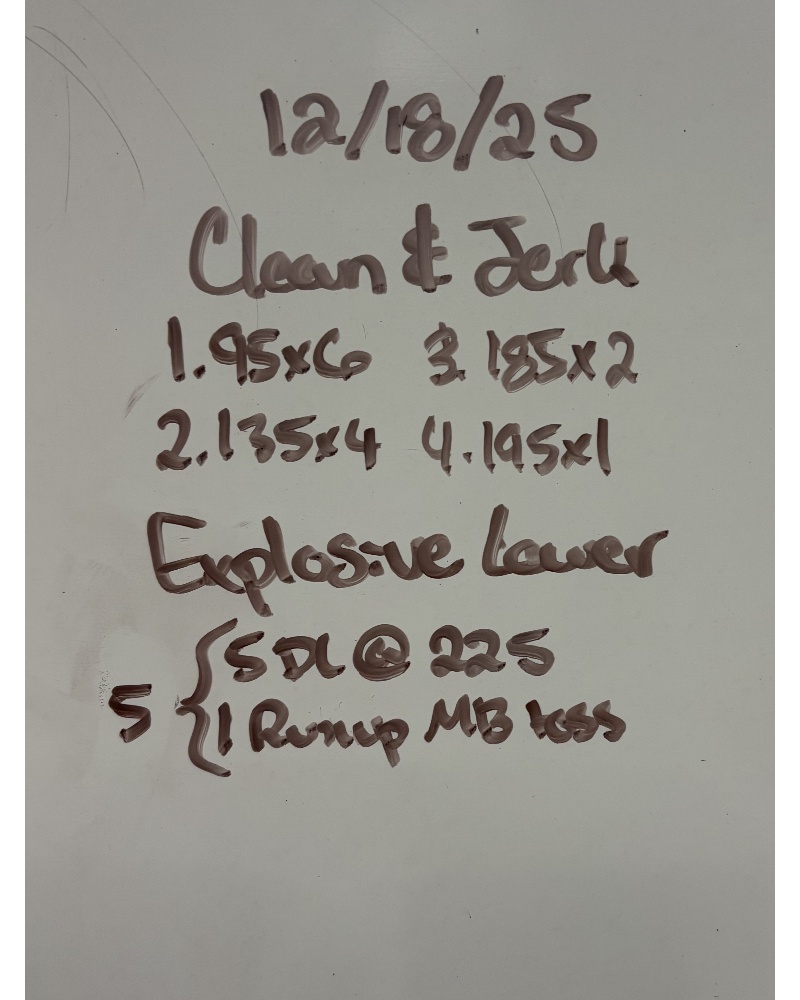 12/18/25
Clean & Jerk
1. 95x6 3. 185x2
2. 135x4 4. 195x1
Explosive Lower
5 { 5 DL @ 225
1 Runup MB toss